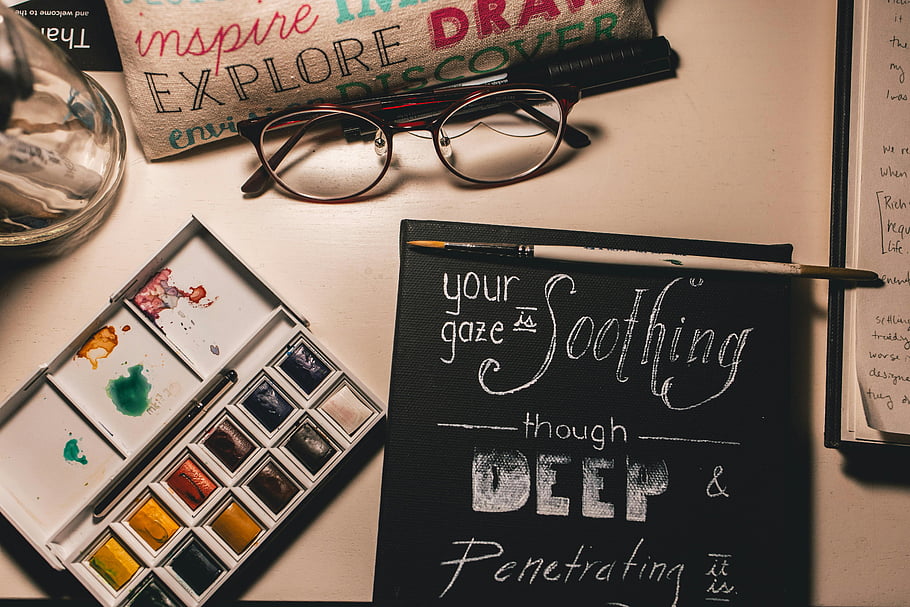 and welcome to the
Thai
inspire
DRAW
EXPLORE
DISCOVER
envi
your
gaze is Soothing
though
DEEP &
Penetrating it
is.
it
the
my
I was
we re
when
Rich
requ
life.
settling
worse i
designe
they d